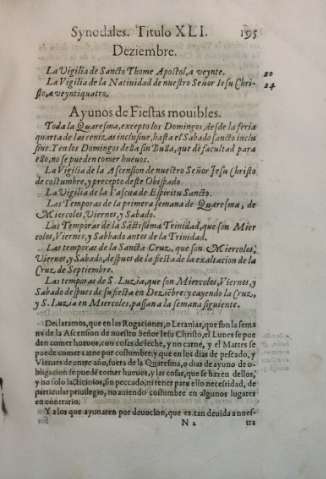 Synodales. Titulo XLI. 195
Deziembre.
La Vigilia de Sancto Thome Apostol, a veynte. 20
La Vigilia de la Natiuidad de nuestro Señor Iesu Chri- 24
sto, a veyntiquatro.
Ayunos de Fiestas mouibles.
Toda la Quaresma, excepto los Domingos, desde la feria
quarta de las ceniz, as inclusiue, hasta el Sabado sancto inclu
siue. Y en los Domingos della sin Bula, que dè facultad para
ello, no se pueden comer hueuos.
La Vigilia de la Ascension de nuestro Señor Iesu Christo
de costumbre, y precepto deste Obispado.
La Vigilia de la Pascua de Espiritu Sancto.
Las Temporas de la primera semana de Quaresma, de
Miercoles, Viernes, y Sabado.
Las Temporas de la Sãctissima Trinidad, que son Mier
coles, Viernes, y Sabbado antes de la Trinidad.
Las temporas de la Sancta Cruz, que son Miercoles,
Viernes, y Sabado, despues de la fiesta de la exaltacion de la
Cruz, de Septiembre.
Las temporas de S. Luzia, que son Miercoles, Viernes, y
Sabado despues de su fiesta en Dezibre: y cayendo la Cruz,
y S. Luzia en Miercoles, passan a la semana siguiente.
Declaramos, que en las Rogaciones, o Letanias, que son la sema
na de la Ascension de nuestro Señor Iesu Christo, el Lunes se pue
den comer hueuos, con cosas de leche, y no carne, y el Martes se
puede comer carne por costumbre; y que en los dias de pescado, y
Viernes de entre año, fuera de la Quaresma, o dias de ayuno de o-
bligacion se puedē comer hueuos, y las cosas, que se hazen dellos,
y no solo lacticinios, sin peccado, ni tener para ello necessidad, ni
particular priuilegio, no auiendo costumbre en algunos lugares
en contrario.
Y a los que ayunaren por deuocion, que es tan deuida a nues-
N 2 tra